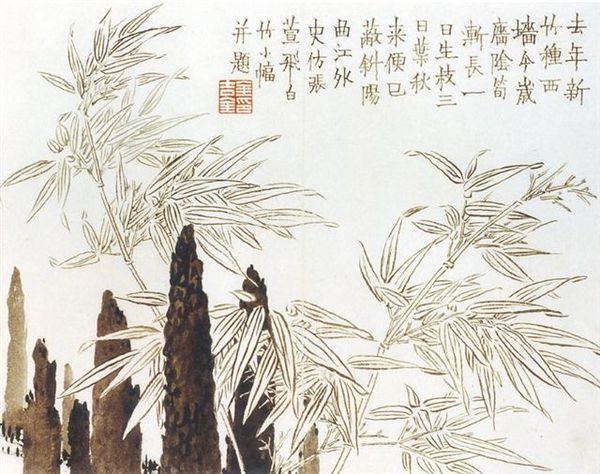 去年新
竹種西
墻今歲
廧陰筍
漸長一
日生枝三
日葉秋
來便已
蔽斜陽
曲江外
史仿張
萱飛白
竹小幅
并題